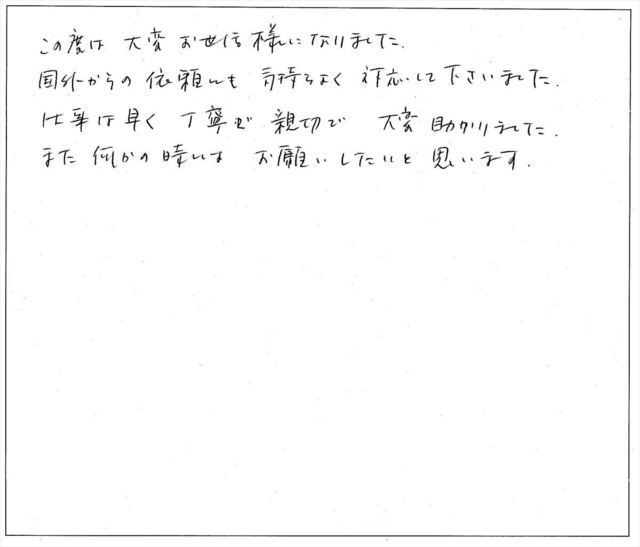 この度は 大変 お世話様になりました.
国外からの 依頼にも 気持ちよく 対応して下さいました.
仕事は早く 丁寧で 親切で 大変 助かりました.
また 何かの時には お願いしたいと 思います.